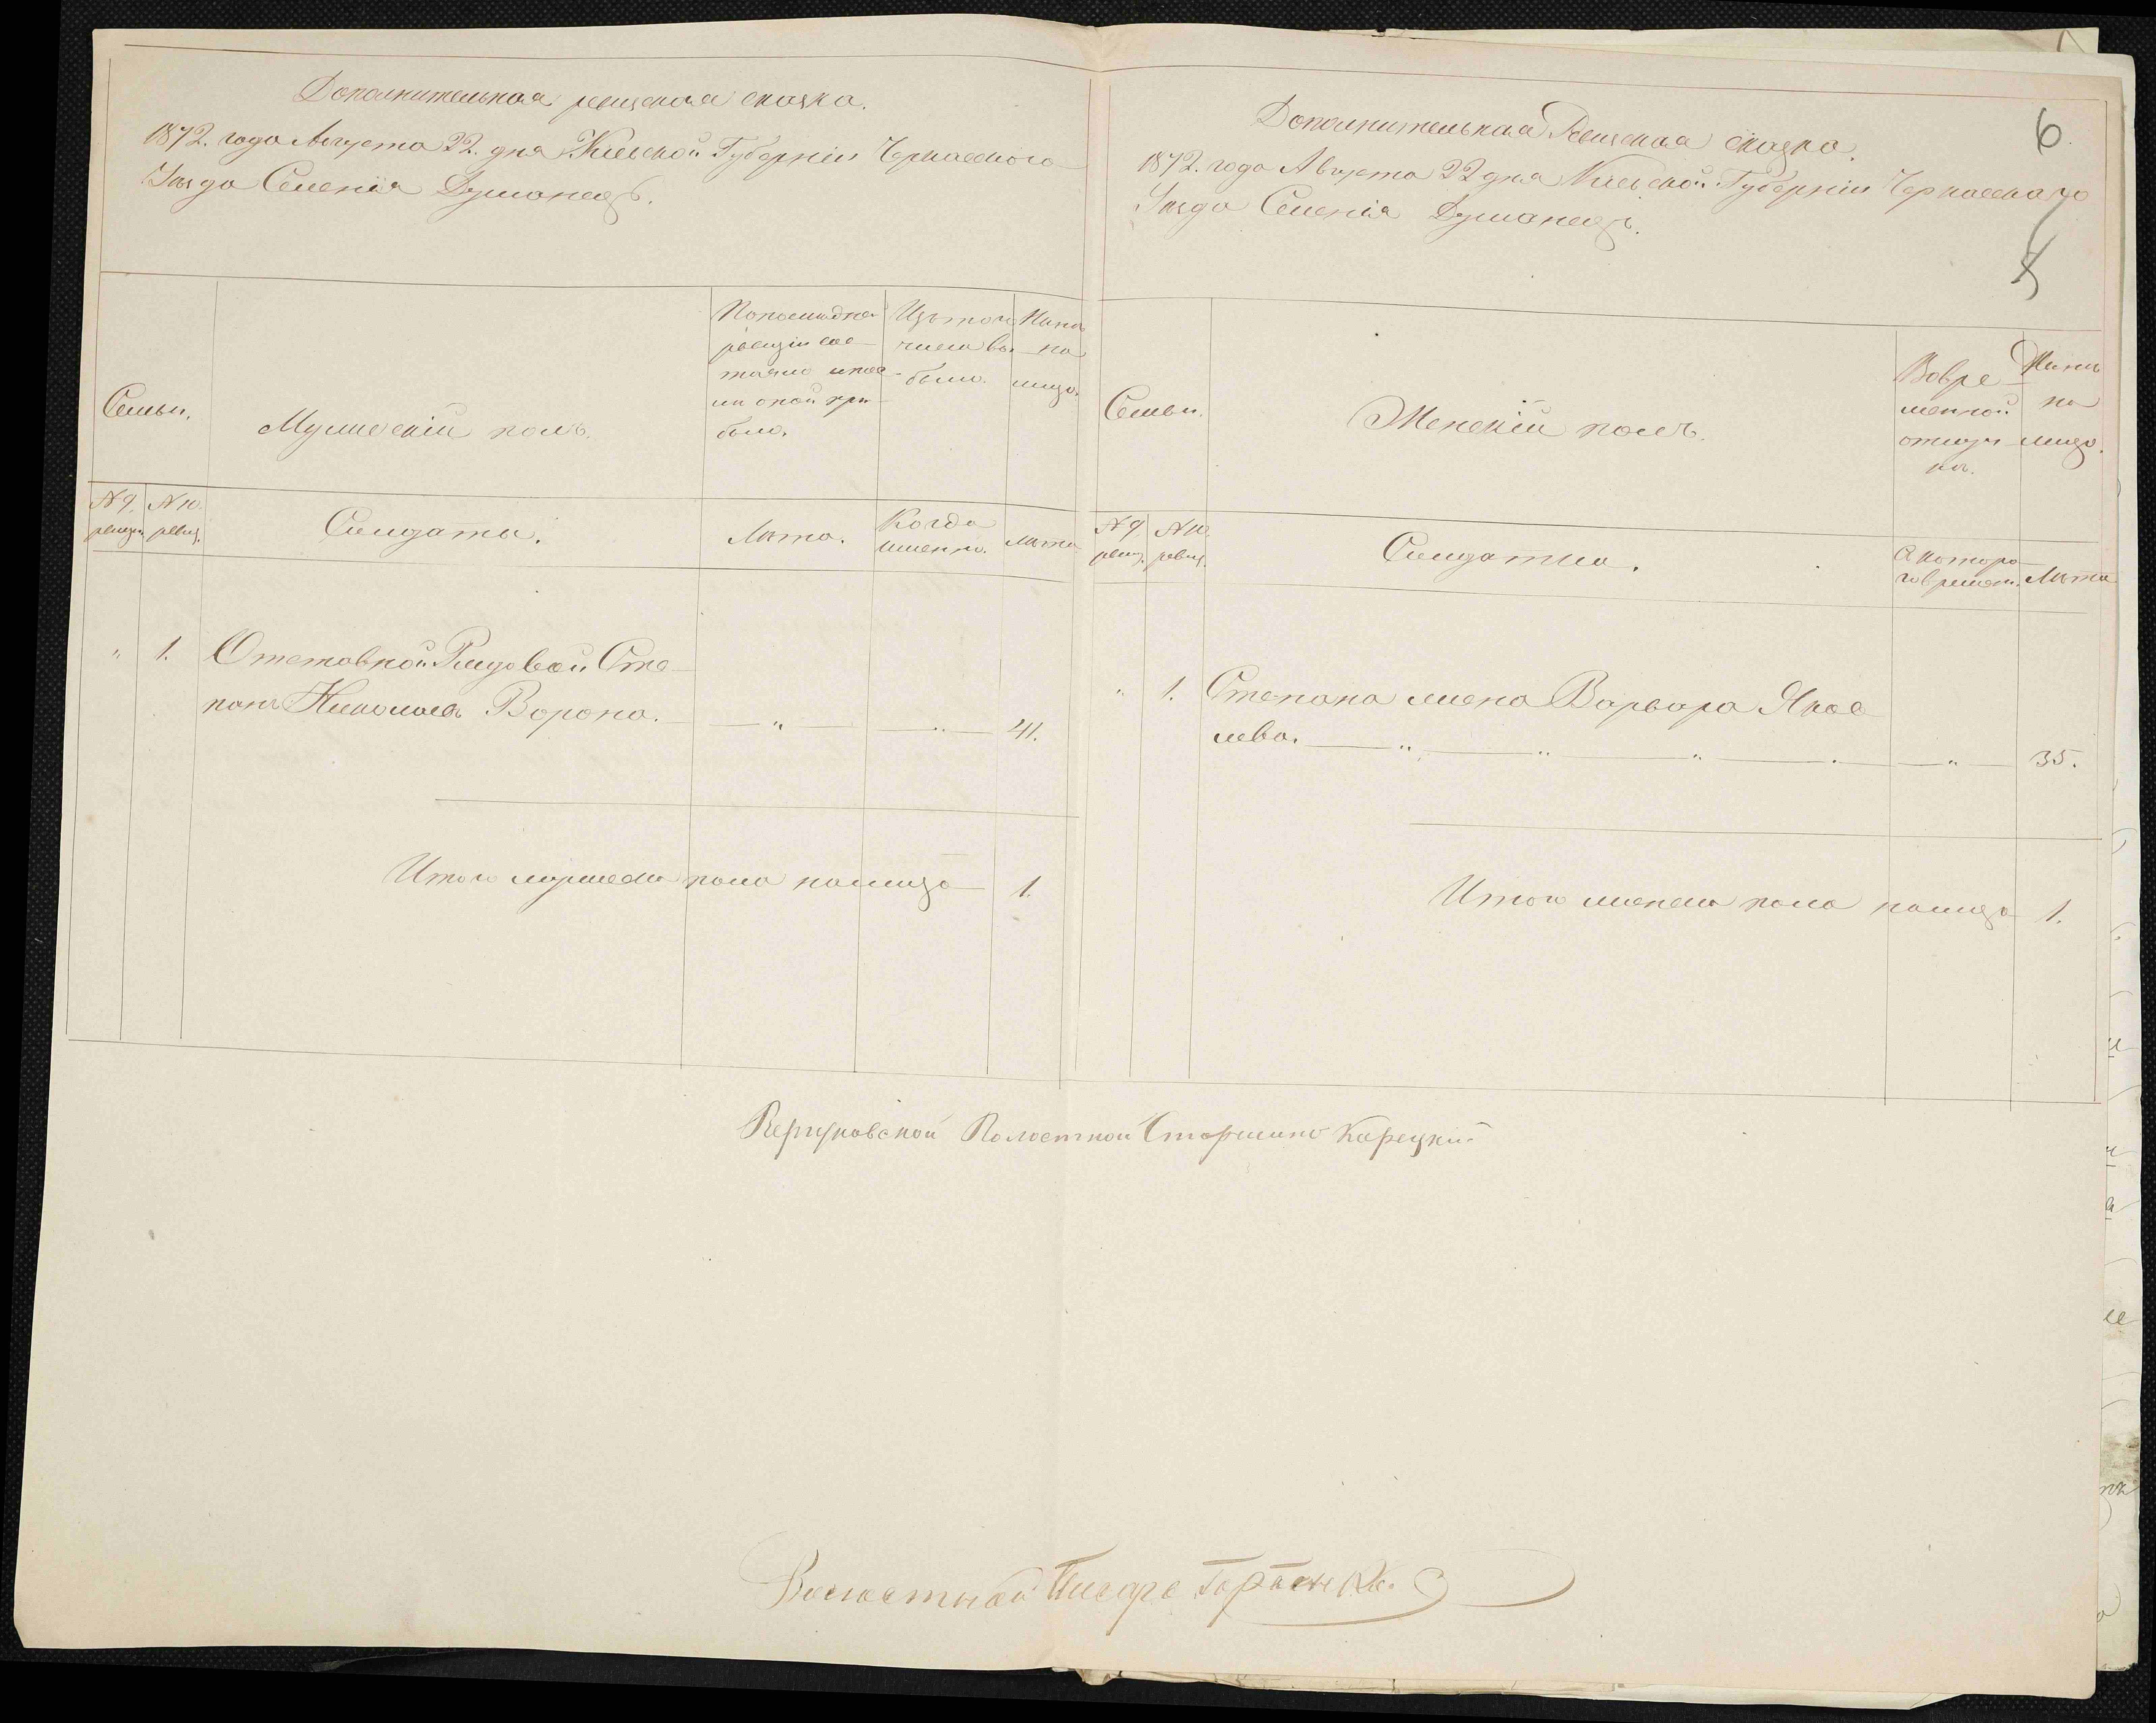 Дополнительная ревизская сказка.
1872. года Августа 22. дня Киевской Губернiи Черкасского
Уѣзда Селенiя Думанецъ.
Семьи.
Мужескiй полъ.
По последней
ревизiи сос-
тояло и пос-
ли оной при-
было.
Изъ того
числа вы-
было.
Нынѣ
на
лицо.
№ 9. ревиз.
№ 10. ревиз.
Солдаты.
Лѣта.
Когда
именно.
Лѣта
" 1. Отставной Рядовой Сте-
панъ Николаевъ Ворона. — " — — " — 41.
Итого мужеска пола на лицо 1.
6.
Дополнительная Ревизская сказка.
1872. года Августа 22 дня Киевской Губернiи Черкасскаго
Уѣзда Селенiя Думанецъ.
Семьи.
Женскiй полъ.
Во вре-
менной
отлуч-
кѣ.
Нынѣ
на
лицо.
№ 9 ревиз.
№ 10. ревиз.
Солдатки.
С котора-
го времен.
Лѣта
" 1. Степана жена Варвара Яков-
лева. — " — " — " — " — 35.
Итого женска пола на лицо 1.
Волостной Старшина Карецкий
Волостной Писарь